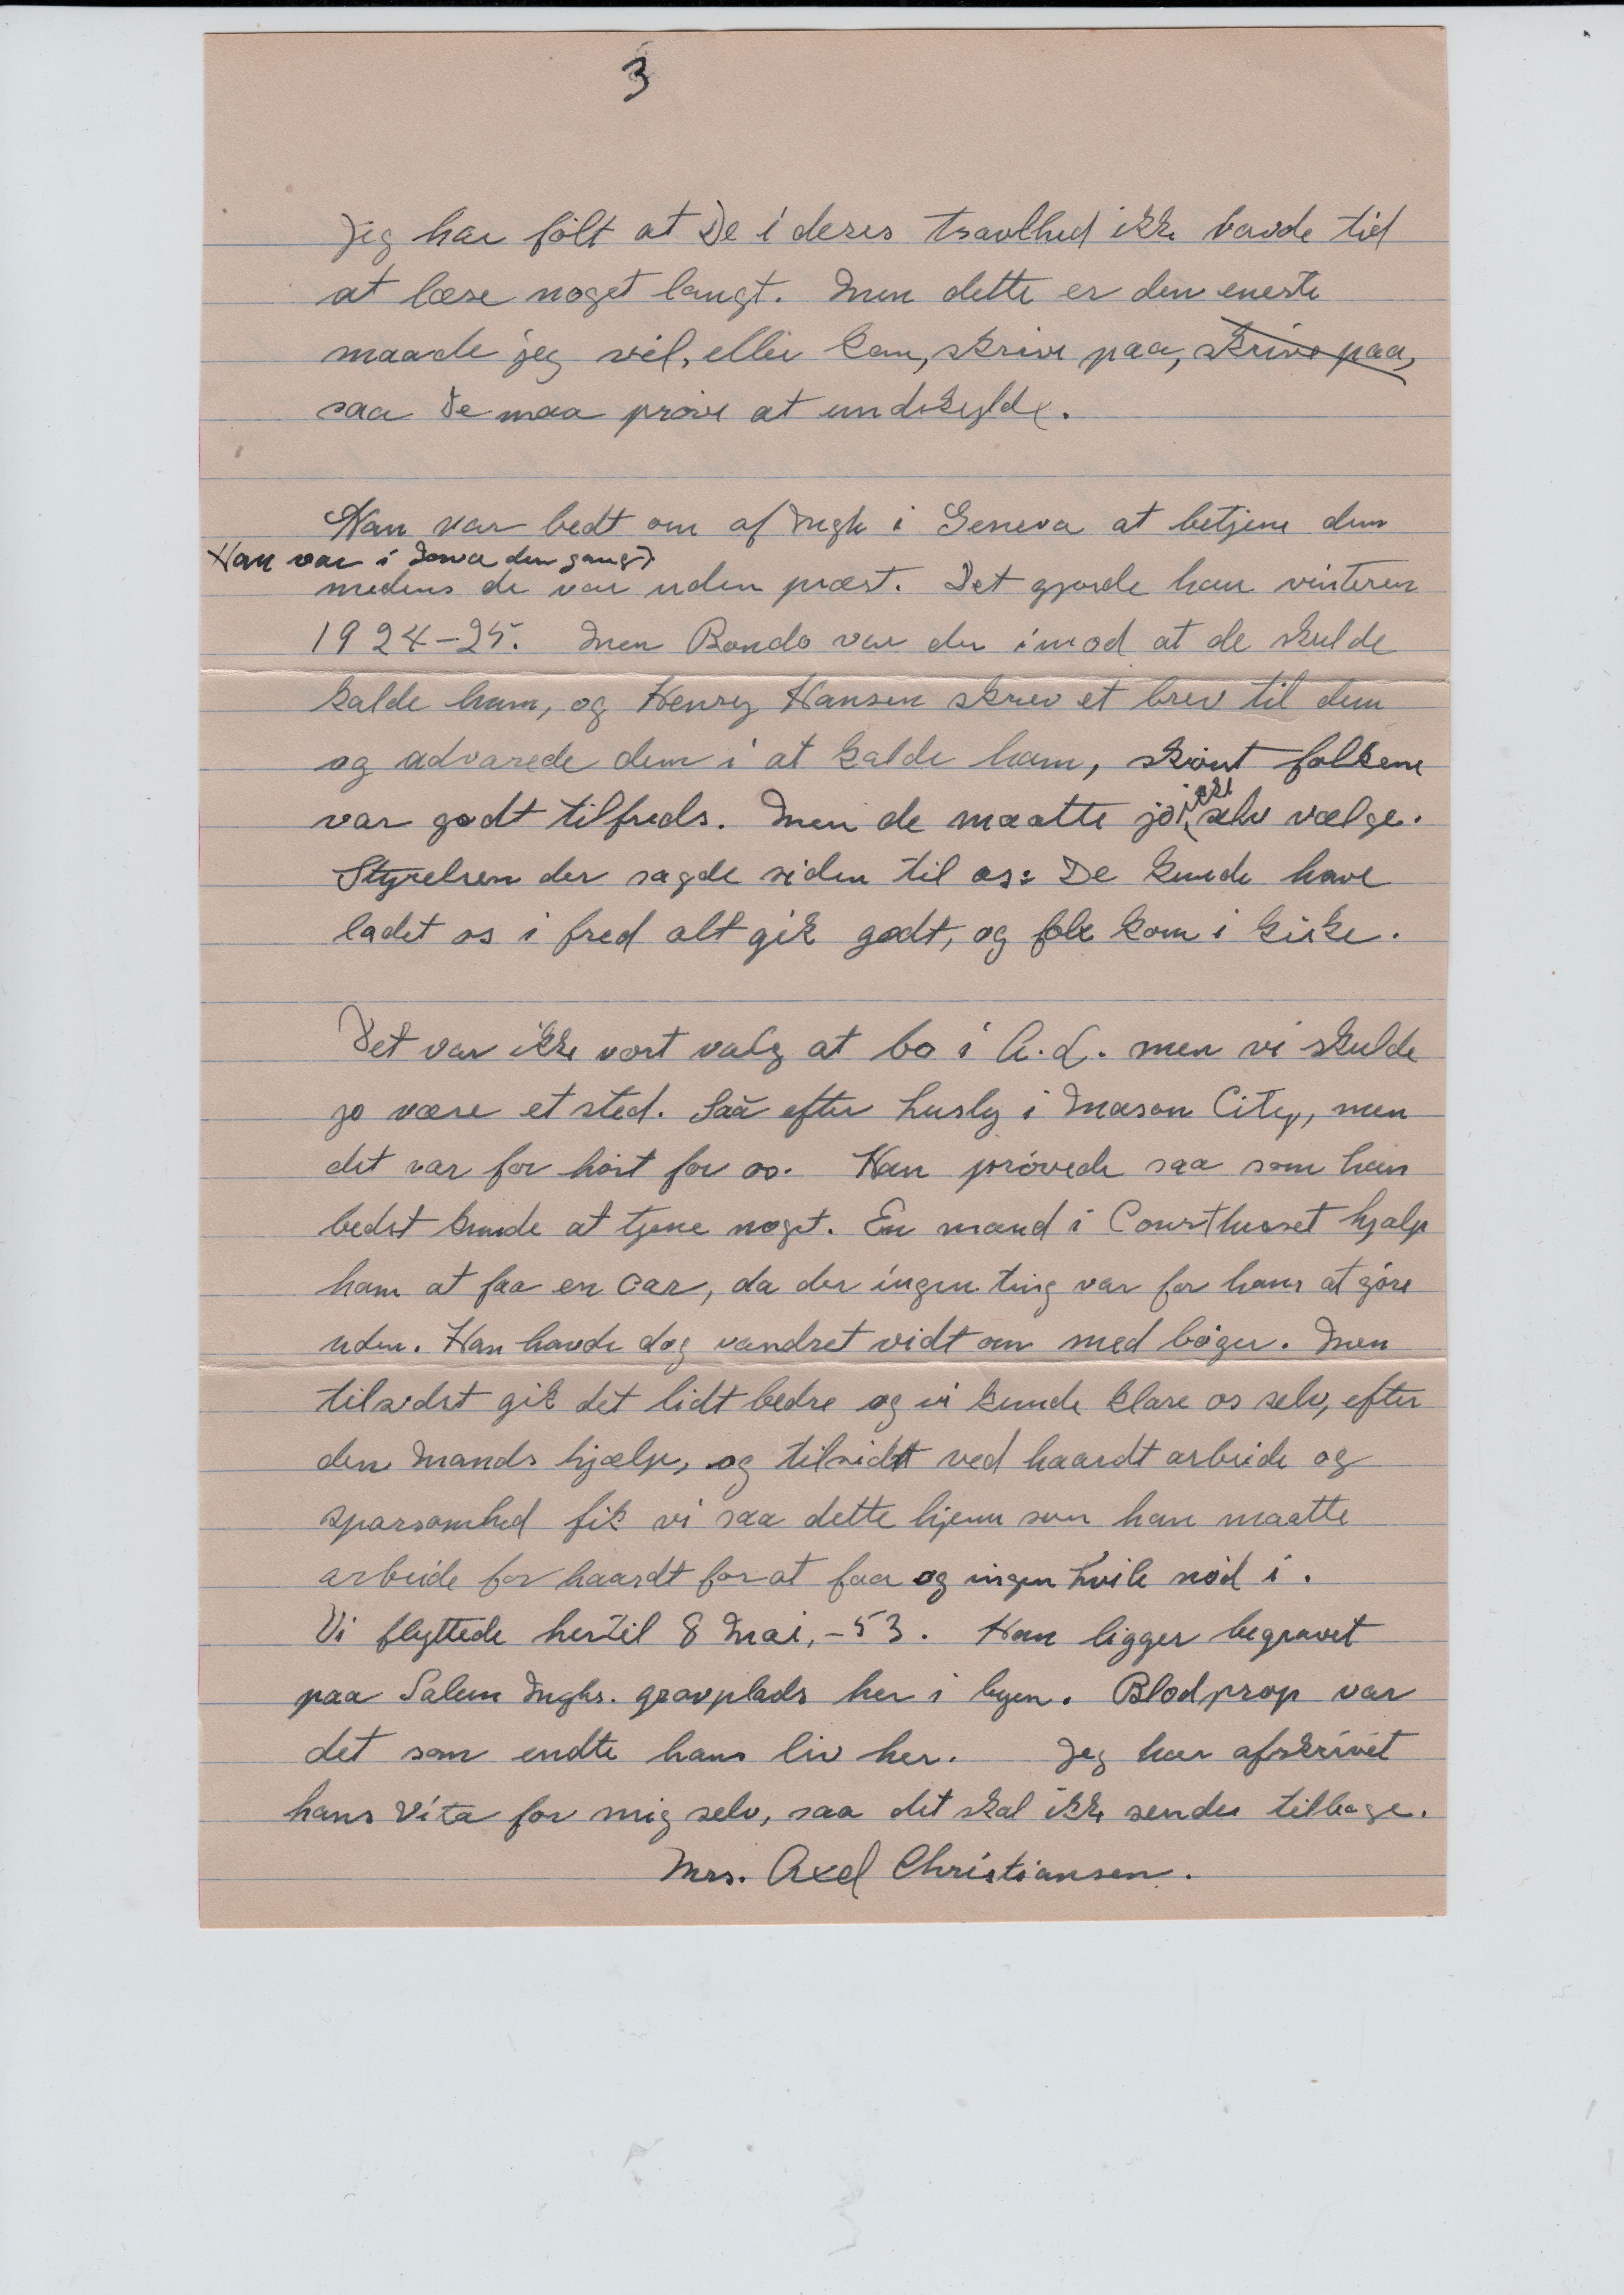 3
Jeg har fölt at De i deres travlhed ikke havde tid
at læse noget langt. Men dette er den eneste
maade jeg vil, eller kan, skrive paa, skrive paa,
saa De maa pröve at undskylde.
Han var bedt om af Mgh i Geneva at betjene dem
Han var i Iowa den gang)
medens de var uden præst. Det gjorde han vinteren
1924-25. Men Bondo var der imod at de skulde
kalde ham, og Henry Hansen skrev et brev til dem
og advarede dem i at kalde ham, skönt folkene
var godt tilfreds. Men de maatte jo ikke selv vælge.
Styrelsen der sagde siden til os: De kunde have
ladet os i fred alt gik godt, og folk kom i kirke.
Det var ikke vort valg at bo i A.L. men vi skulde
jo være et sted. Saa efter husly i Mason City, men
det var for höit for os. Han prövede saa som han
bedst kunde at tjene noget. En mand i Courthuset hjalp
ham at faa en car, da der ingen ting var for ham at göre
uden. Han havde dog vandret vidt om med böger. Men
tilsidst gik det lidt bedre og vi kunde klare os selv, efter
den Mands hjælp, og tilsidst ved haardt arbeide og
sparsomhed fik vi saa dette hjem som han maatte
arbeide for haardt for at faa og ingen hvile nöd i.
Vi flyttede hertil 8 Mai, -53. Han ligger begravet
paa Salem Mghs. gravplads her i byen. Blodprop var
det som endte hans liv her. Jeg har afskrivet
hans Vita for mig selv, saa det skal ikke sendes tilbage.
Mrs. Axel Christiansen.